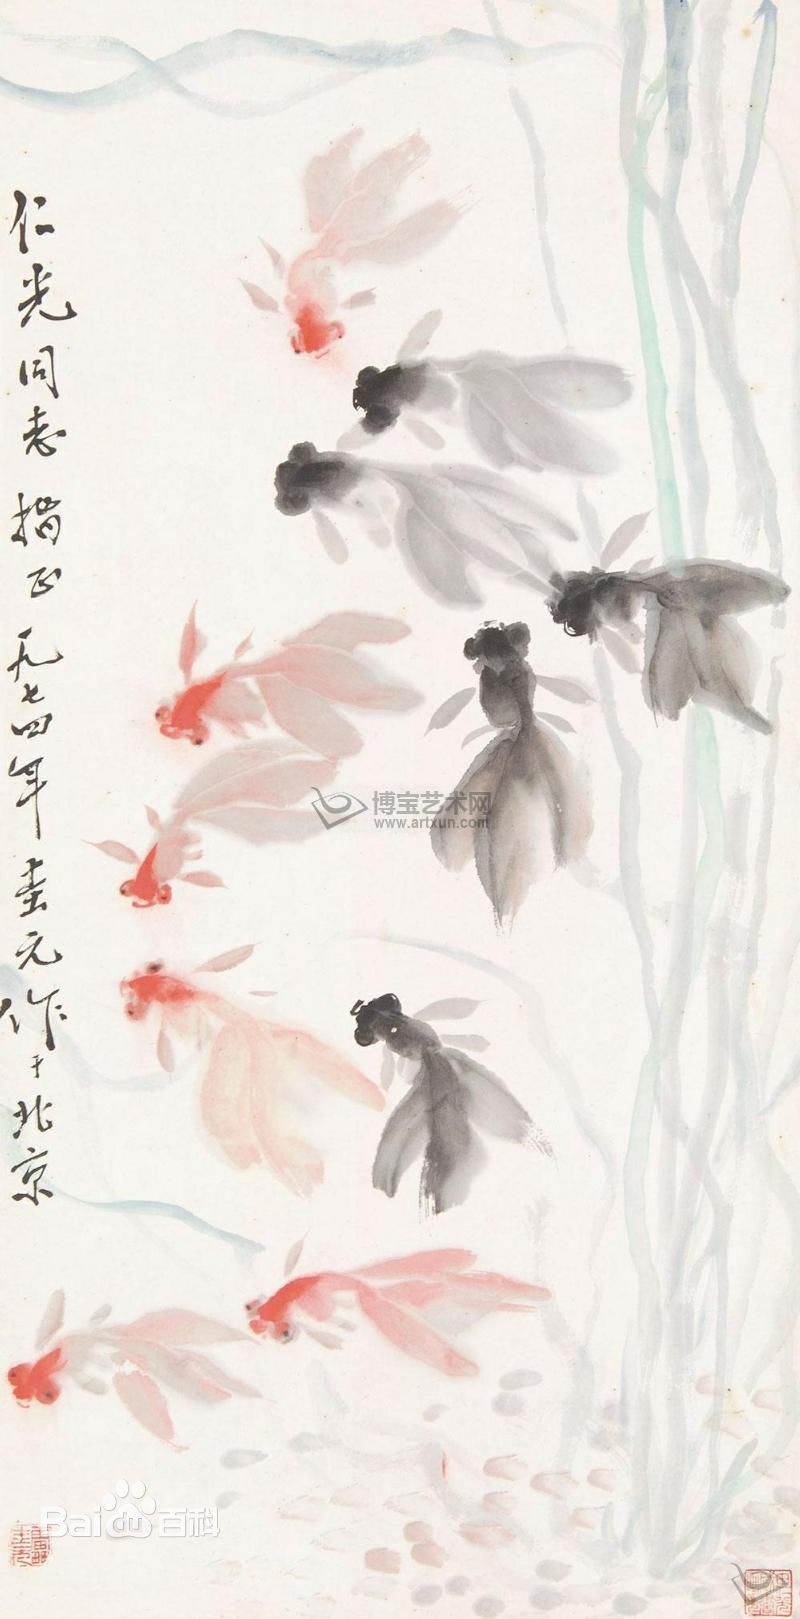 仁光同志指正一九七四年奎元作于北京
博宝艺术网
www.artxun.com
Bai百科